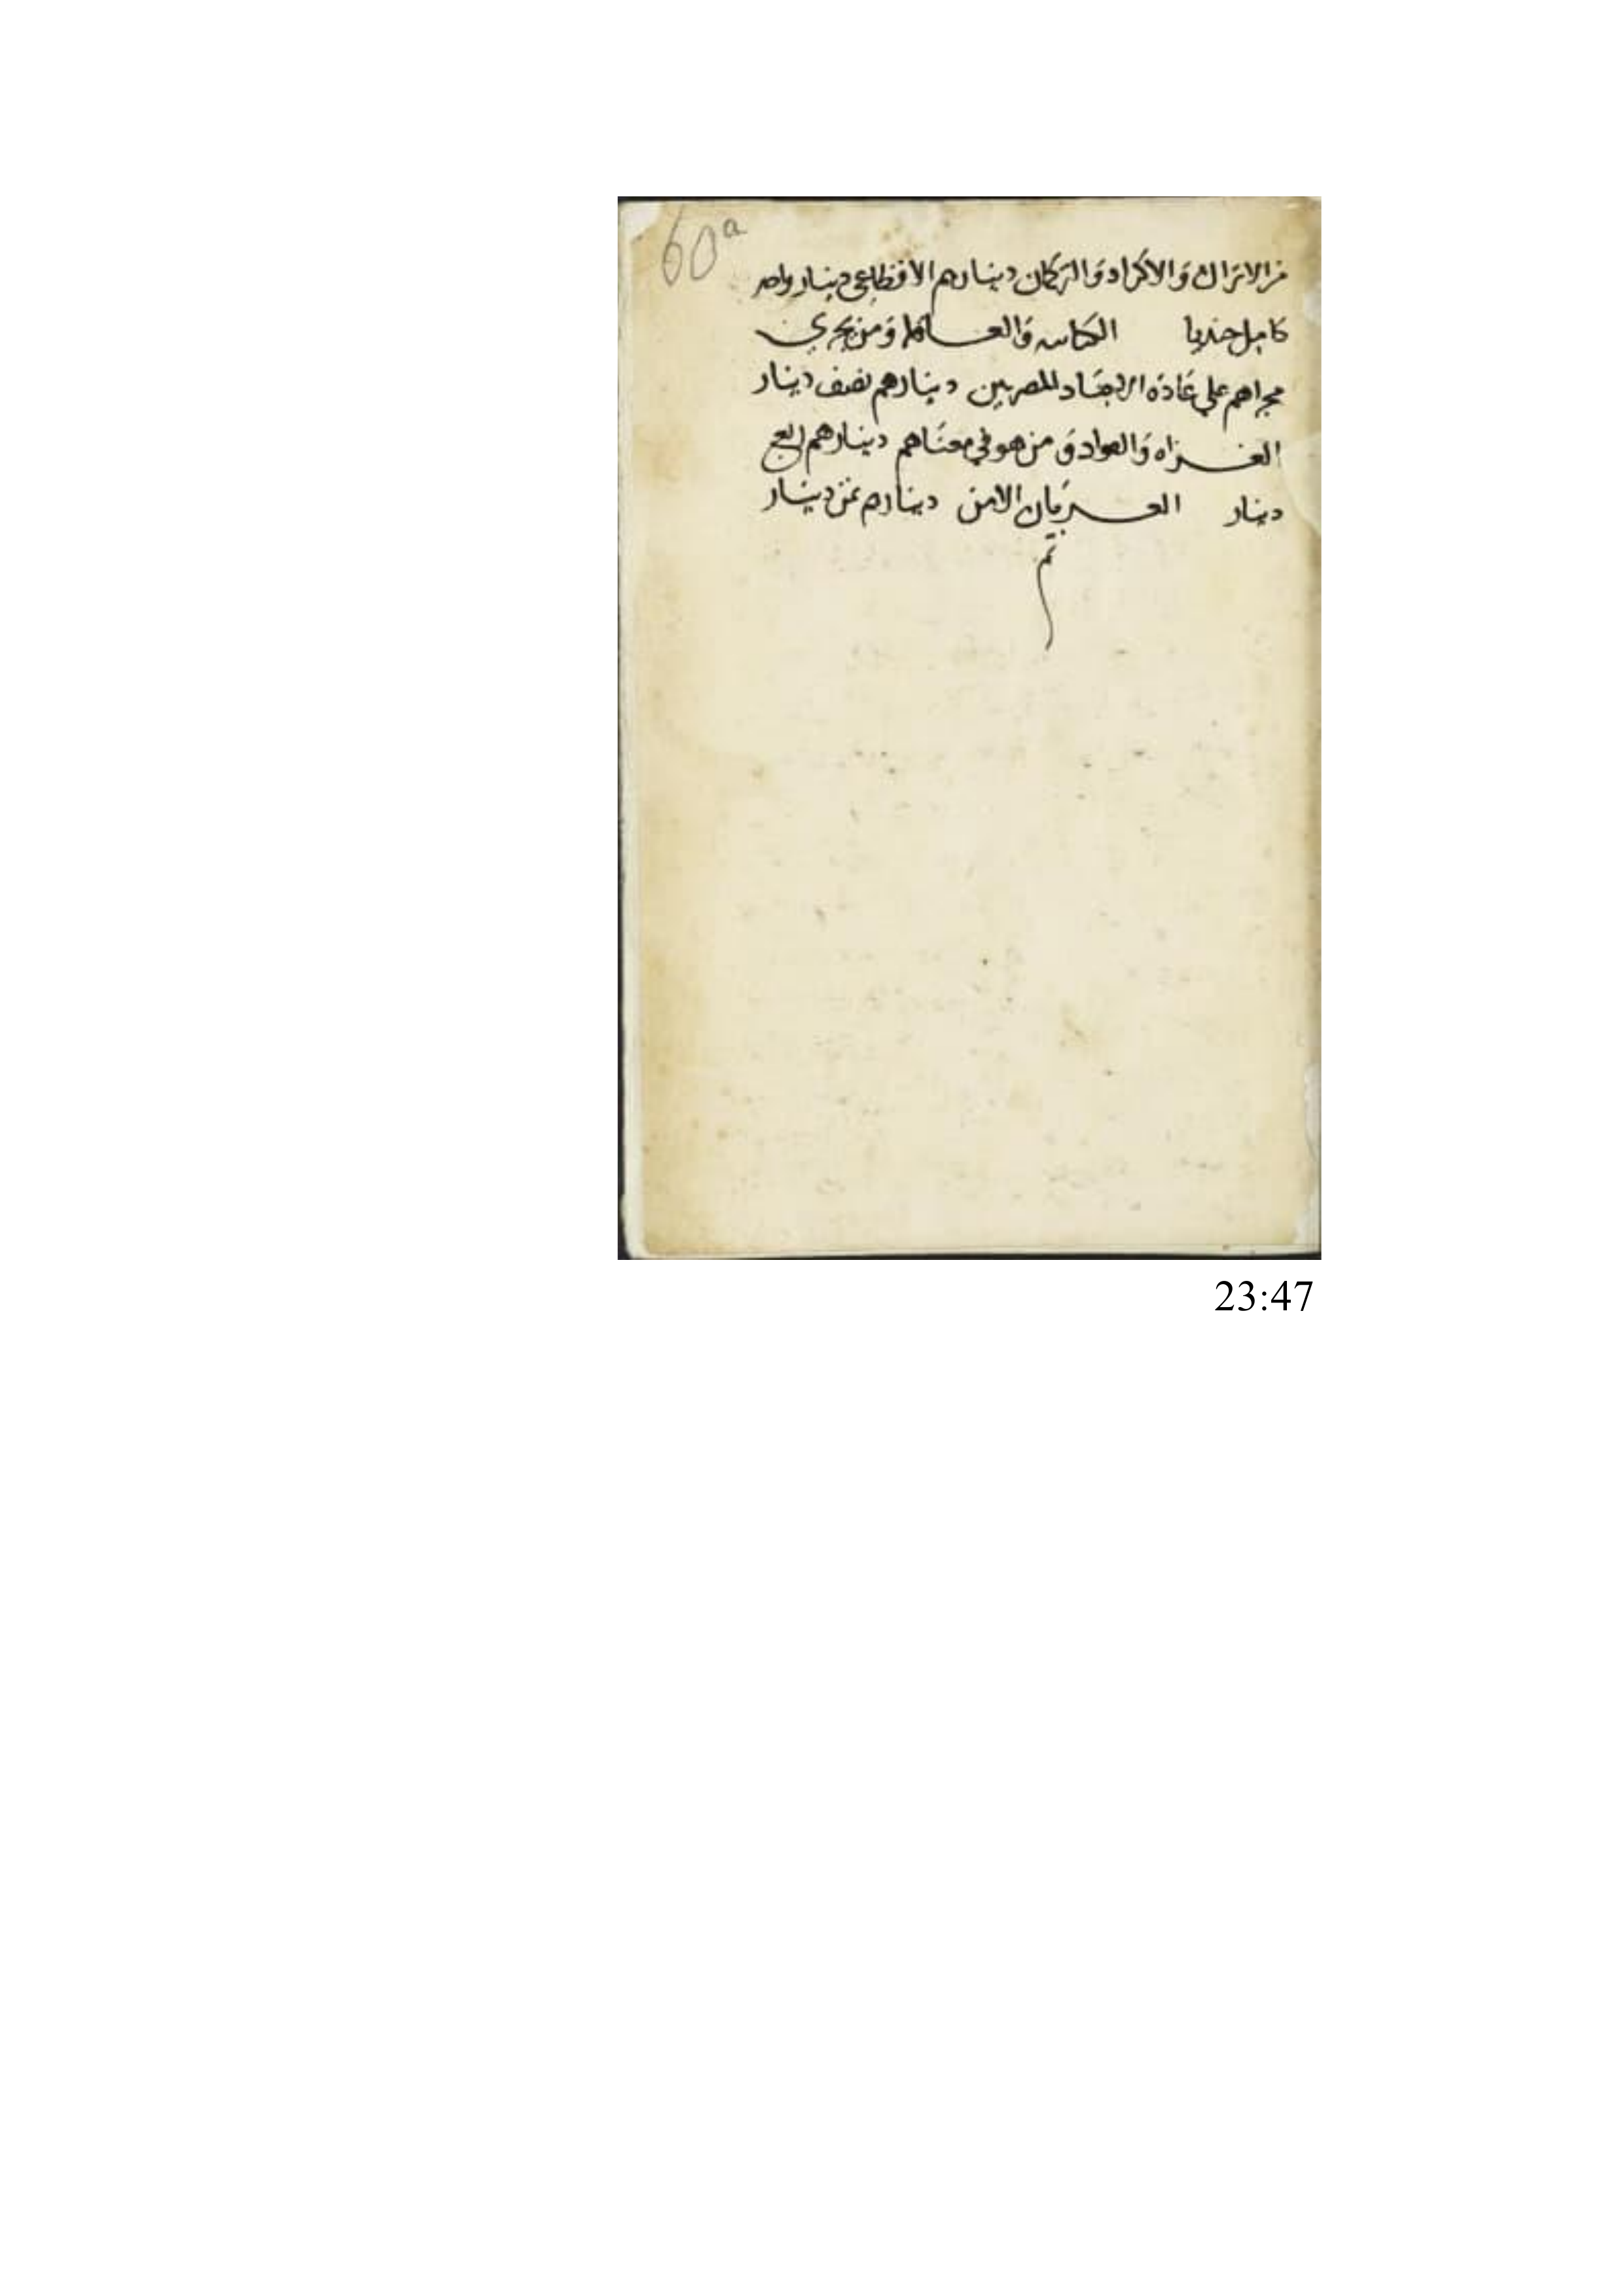 60a
من الاتراك والاكراد والتركمان دينارهم الاقطاعي دينار واحد
كامل جنديا الكنانيه والعساقله ومن يجري
مجراهم علي عادة الاجناد المصريين دينارهم نصف دينار
الغزاه والقواد ومن هو في معناهم دينارهم ربع
دينار العربان الامن دينارهم ثمن دينار
تم
23:47